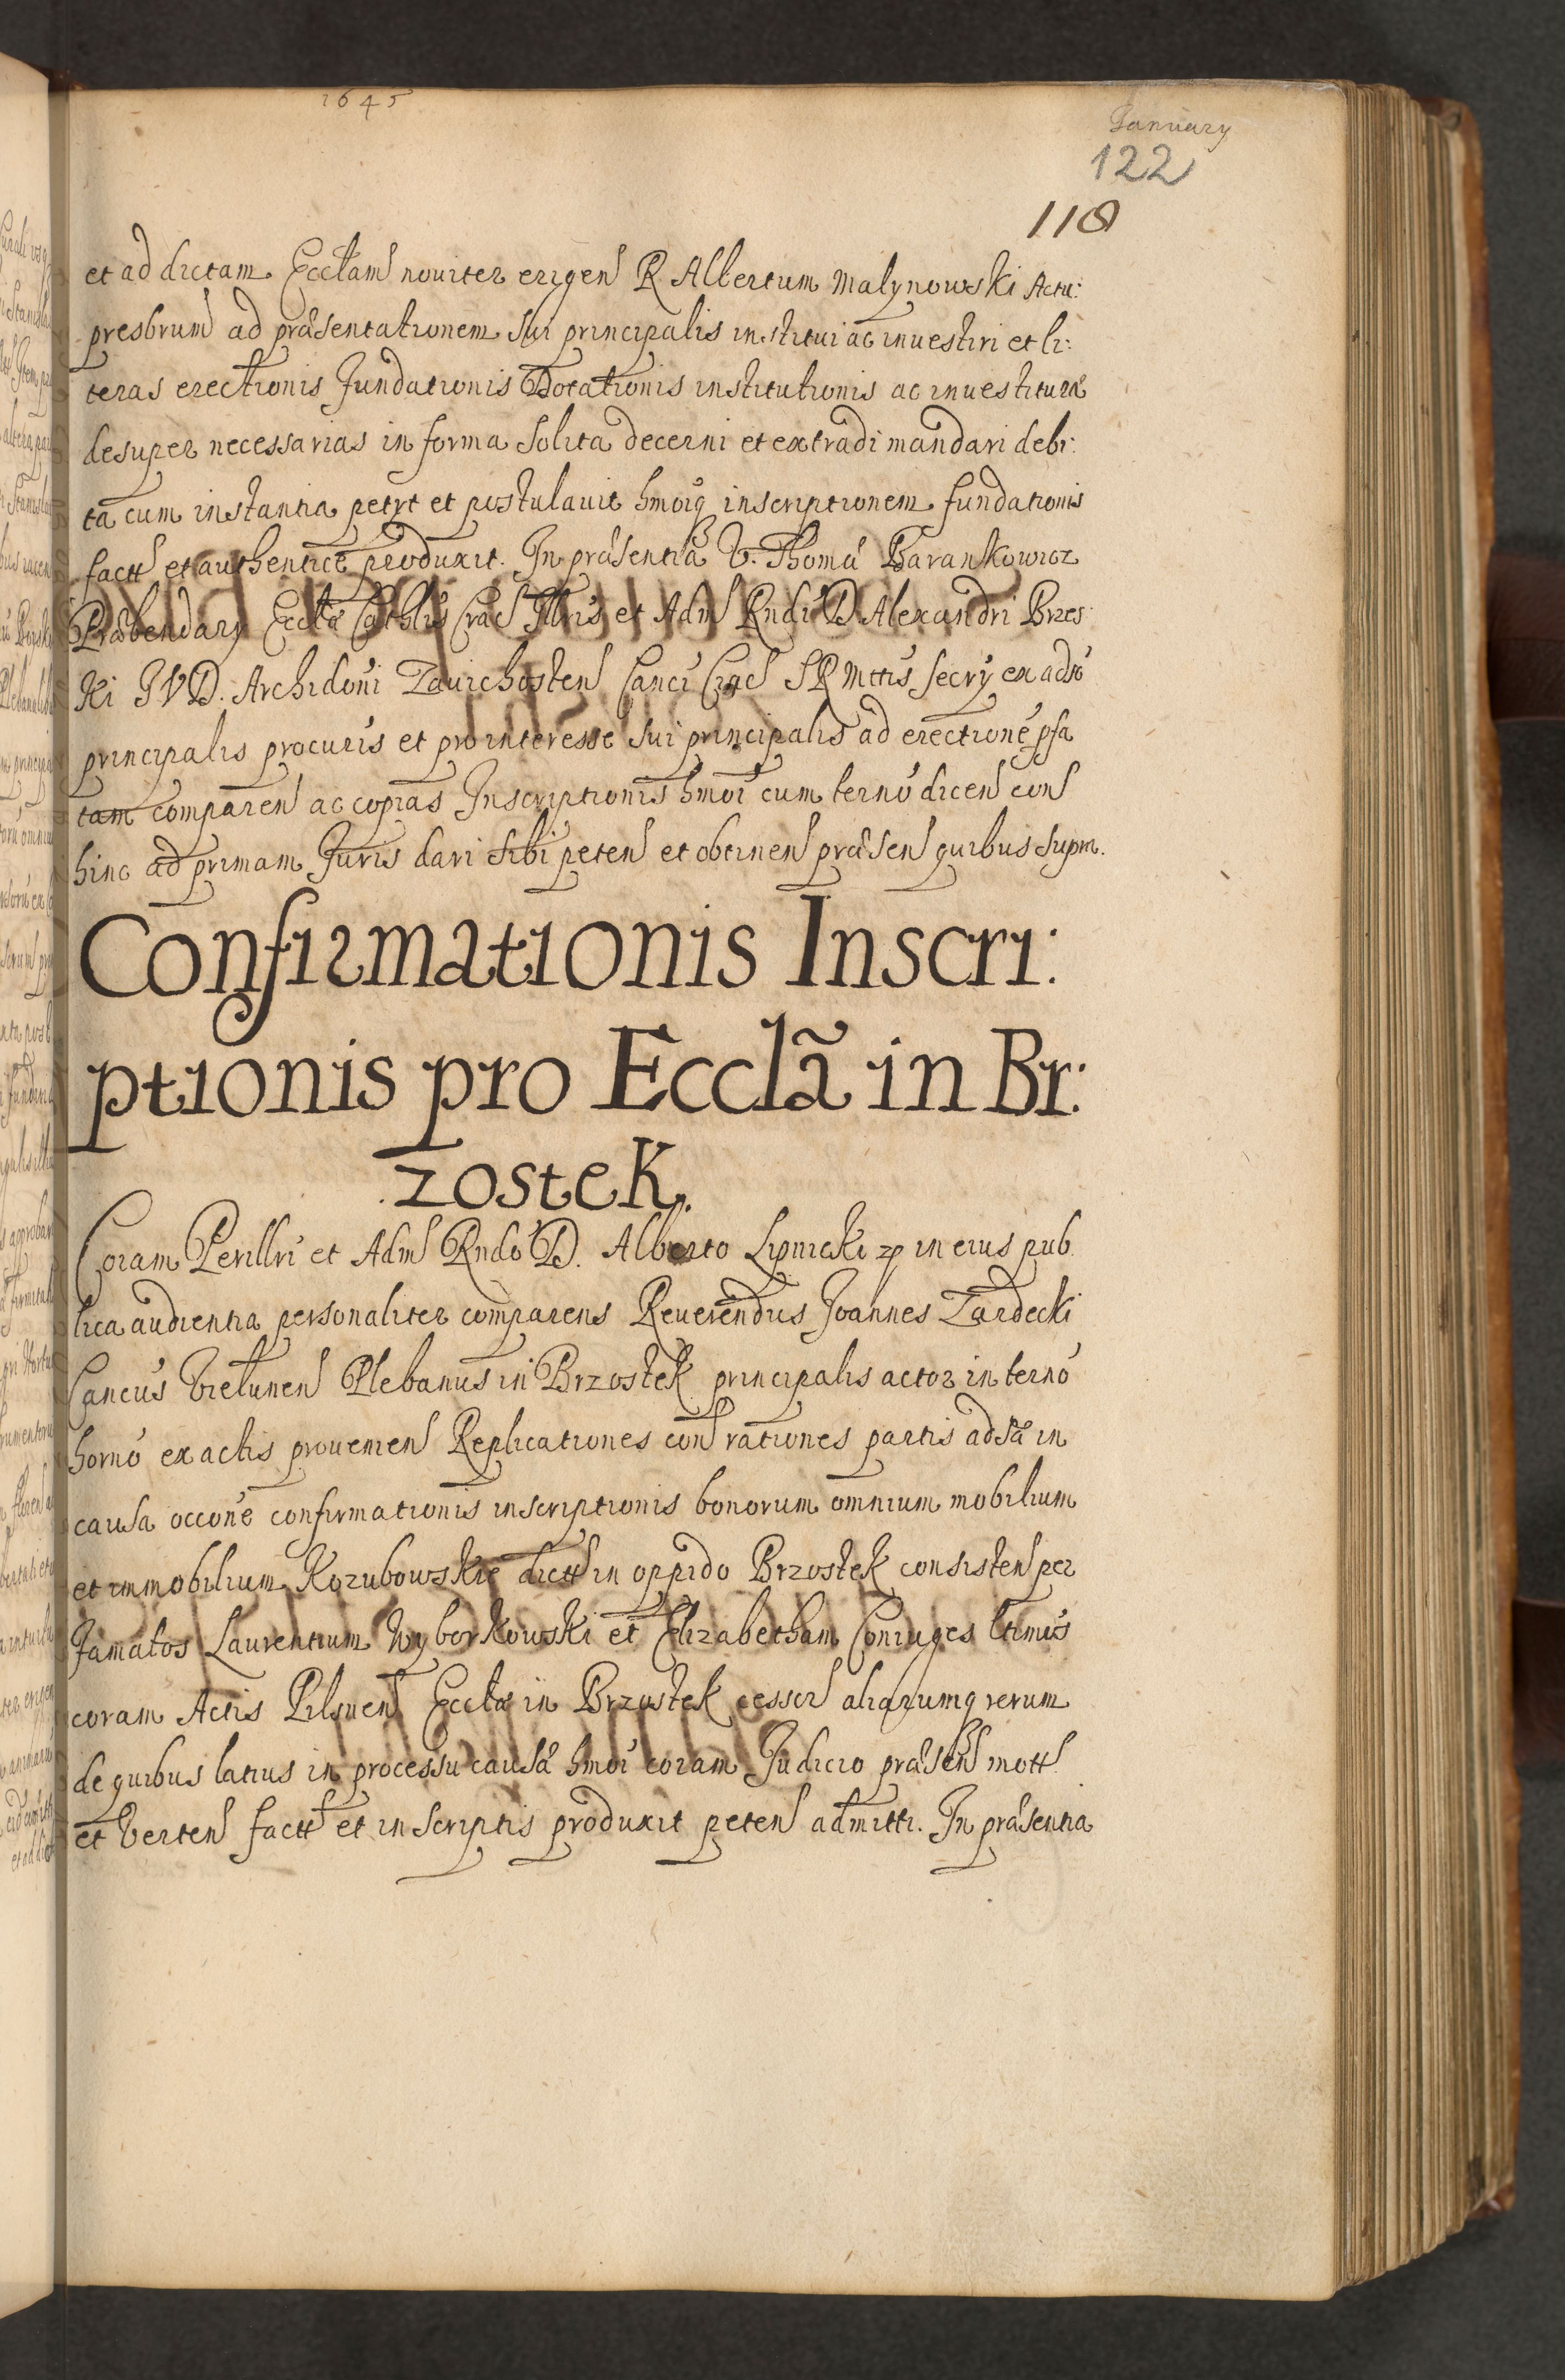 1645
January
122
118
et ad dictam Ecclam noviter erigen R Albertum Malynowski Actu:
presbrum ad præsentationem sui principalis institui ac investiri et li:
teras erectionis fundationis Dotationis institutionis ac investituræ
desuper necessarias in forma solita decerni et extradi mandari debi:
ta cum instantia petyt et postulavit hmoiq inscriptionem fundationis
factt et authentice produxit. In præsentia V. Thomæ Barankowicz
Præbendary Ecclæ Cathlis Crac Illris et Adm Rndi D Alexandri Brzes
ki JVD. Archidoni Zavichosten Canci Crac SRMttis Secry ex adso
principalis procuris et pro interesse sui principalis ad erectione pfa
tam comparen ac copias Inscriptionis hmoi cum terno dicen con
hinc ad primam Juris dari sibi peten et obtinen præsen quibus supra.
Confirmationis Inscri:
ptionis pro Ecclã in Br:
zostek.
Coram Perillri et Adm Rndo D. Alberto Lipnicki zp in eius pub
lica audientia personaliter comparens Reverendus Joannes Zardecki
Cancus Vielunen Plebanus in Brzostek principalis actor in terno
horno ex actis provenien Replicationes con rationes partis adsæ in
causa occone confirmationis inscriptionis bonorum omnium mobilium
et immobilium Kozubowskie dictt in oppido Brzostek consisten per
famatos Laurentium Wyborkowski et Elizabetham Coniuges ltimus
coram Actis Pilsnen Ecclæ in Brzostek cessor aliarumq rerum
de quibus latius in processu causæ hmoi coram Judicio præsen mott
et verten factt et in scriptis produxit peten admitti. In præsentia